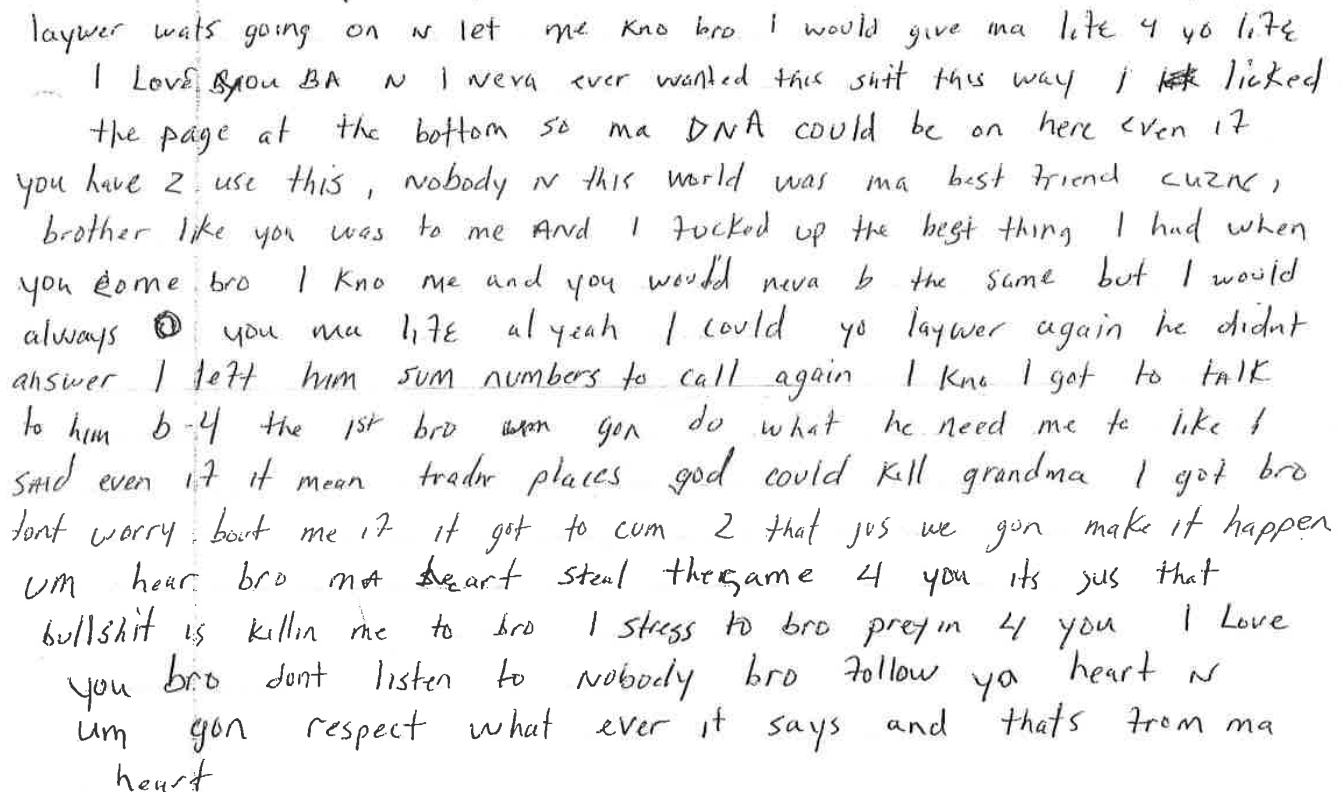 laywer wats going on N let me kno bro I would give ma life 4 yo life
I Love you BA N I Neva ever wanted this shit this way i licked
the page at the bottom so ma DNA could be on here even if
you have 2 use this, Nobody N this world was ma best friend cuzN,
brother like you was to me And I fucked up the best thing I had when
you come bro I Kno me and you would neva b the same but I would
always you ma life al yeah I could yo laywer again he didnt
answer I left him sum numbers to call again I Kno I got to tAlK
to him b-4 the 1st bro gon do what he need me to like I
SAid even if it mean tradN places god could Kill grandma I got bro
dont worry bout me if it got to cum 2 that jus we gon make it happen
um hear bro mA heart steal the same 4 you its jus that
bullshit is killin me to bro I stress to bro preyin 4 you I Love
you bro dont listen to Nobody bro follow ya heart N
um gon respect what ever it says and thats from ma
heart